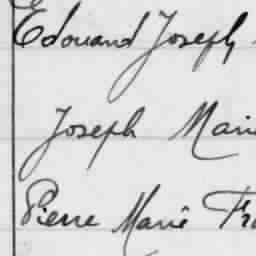 Edouard Joseph
Joseph Marie
Pierre Marie Fra